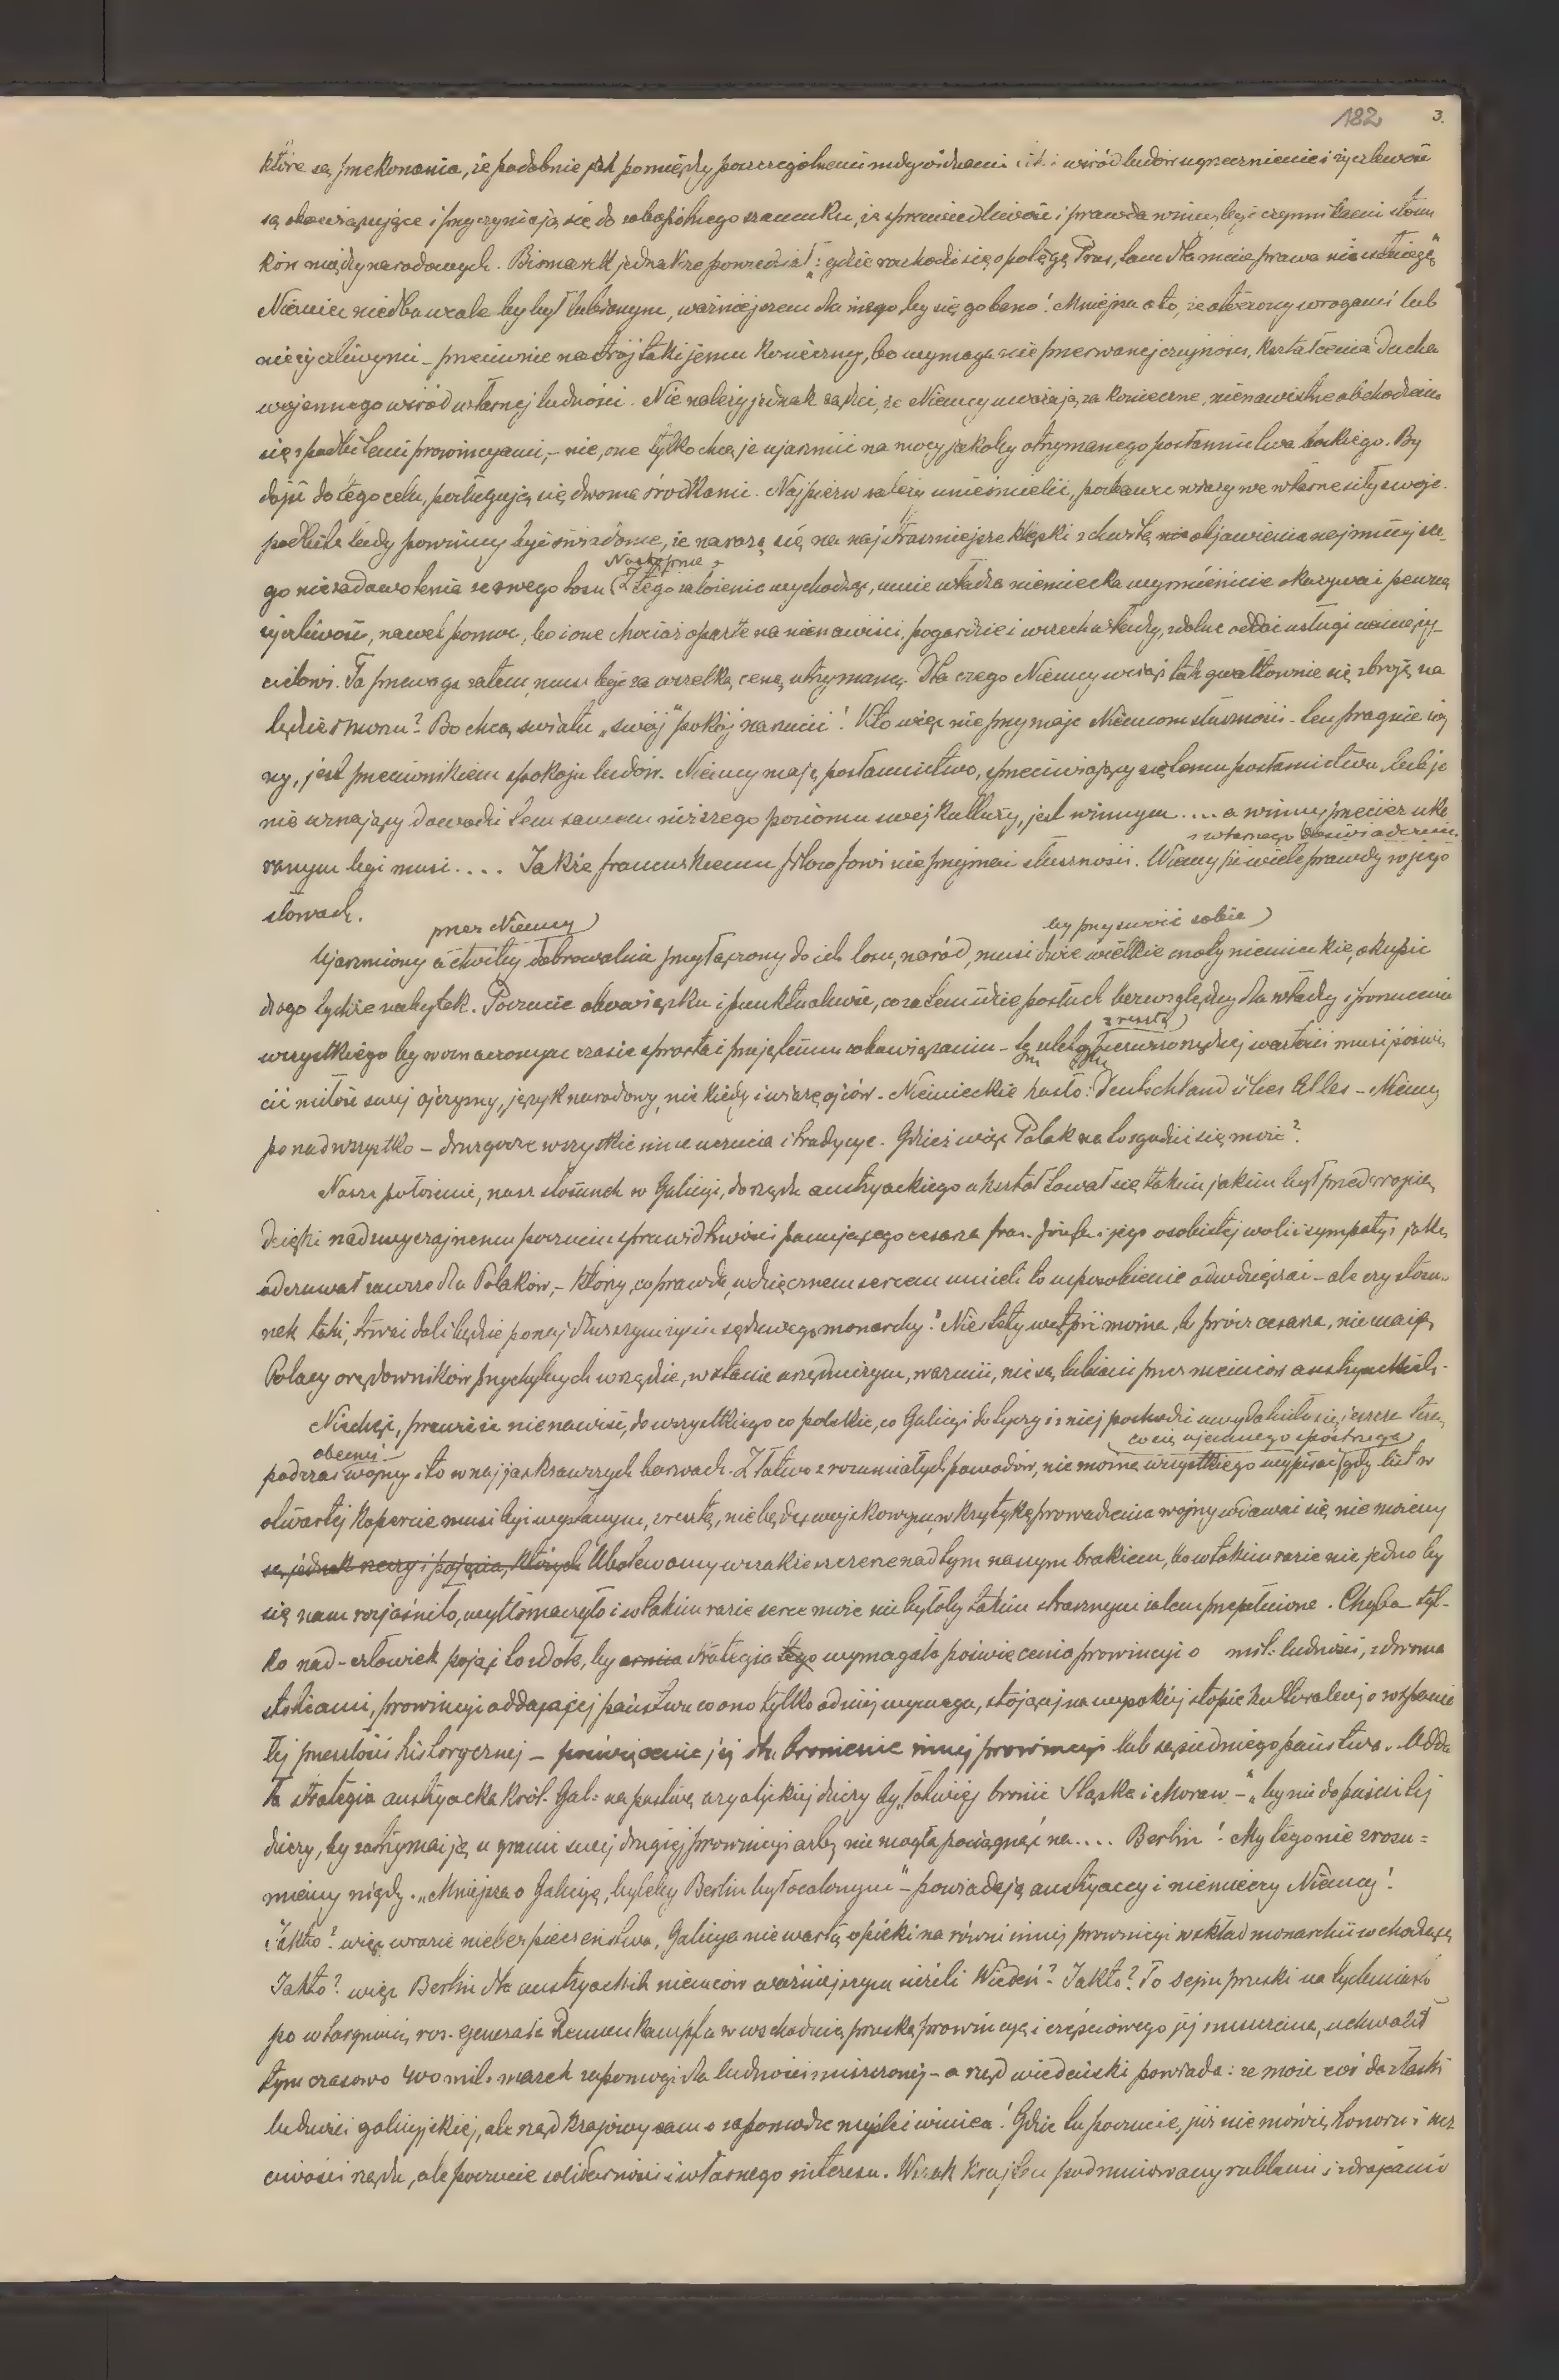 182 3.
które są przekonania, że podobnie jak pomiędzy poszczególnemi indywiduami i wśród ludów ugrzecznienie i życzliwość
są obowiązujące i przyczyniają się do obopólnego szacunku, że sprawiedliwość i prawda winny być czynnikami stosun
ków międzynarodowych. Bismarck jednakże powiedział: „gdzie rozchodzi się o potęgę Prus, tam dla mnie prawa nie istnieją"
Niemiec niedba wcale by był lubianym, ważniejszem dla niego by się go bano! Mniejsza o to, że otoczony wrogami lub
nieżyczliwymi - przeciwnie nastrój taki jemu konieczny, bo wymaga nieprzerwanej czujności, kształcenia ducha
wojennego wśród własnej ludności. Nie należy jednak sądzić, że Niemcy uważają za konieczne, nienawistne obchodzenie
się z podbitemi prowincyami, - nie, one tylko chcą je ujarzmić na mocy jakoby otrzymanego posłannictwa boskiego. By
dojść do tego celu, posługują się dwoma środkami. Najpierw należy unieśmielić, wiary we własne siły swoje.
podbite ludy powinny być świadome, że narażą się na najstraszniejsze klęski z chwilą objawienia najmniejsze-
Następnie z
go niezadowolenia ze swego losu (Z tego założenia wychodząc, umie władza niemiecka wymienicie okazywać pewną
życzliwość, nawet pomoc, bo i one chociaż oparte na nienawiści, pogardzie i wszechwładzy, zdolne oddać usługi
cielowi. Ta przewaga zatem, musi być za wszelką cenę utrzymaną. Dla czego Niemcy wciąż tak gwałtownie się zbroją na
lądzie i morzu? Bo chcą światu „swój" pokój narzucić! Kto więc nie przyznaje Niemcom słuszności - ten pragnie woj
ny, jest przeciwnikiem spokoju ludów. Niemcy mają posłannictwo, sprzeciwiający się temu posłannictwu lub je
nie uznający dowodzi tem samem niższego poziomu swej kultury, jest winnym .... a winny przecież uka
z własnego doświadczenia
ranym być musi.... Jakże francuskiemu filozofowi nie przyznać słuszności. Wiemy że wiele prawdy w jego
słowach.
przez Niemcy) by przyswoić sobie)
Ujarzmiony a choćby dobrowolnie przyłączony do ich losu, naród, musi dwie wielkie cnoty niemieckie, okupić
drogo tychże nabytek. Poczucie obowiązku i punktualność, co zatem idzie posłuch bezwzględny dla władzy i porzucenie
zresztą)
wszystkiego by w oznaczonym czasie sprostać przyjętemu zobowiązaniu - pierwszorzędnej wartości musi poświę
cić miłość swej ojczyzny, język narodowy, nie kiedy i wiarę ojców. Niemieckie hasło: Deutschland über Alles - Niemcy
ponad wszystko - druzgocze wszystkie inne uczucia i tradycye. Gdzież więc Polak na to zgodzić się może?
Nasze położenie, nasz stosunek w Galicyi, do rządu austryackiego ukształtował się takim jakim był przed wojną,
dzięki nadzwyczajnemu poczuciu sprawiedliwości panującego cesarza Fran. Józefa i jego osobistej woli i sympatyi jaką
odczuwał zawsze dla Polaków, - którzy, co prawda, wdzięcznem sercem umieli to usposobienie odwdzięczać - ale czy stosu-
nek taki, trwać dalej będzie po najdłuższym życiu sędziwego monarchy? Niestety wątpić można, bo prócz cesarza, nie mają,
Polacy orędowników przychylnych w rządzie, w stanie urzędniczym, w armii, nie są lubiani przez niemców austryackich.
Niechęć, przeważa nienawiść, do wszystkiego co polskie, co Galicyi dotyczy i z niej pochodzi uwydatniła się jeszcze teraz
obecnej co się ujemnego spostrzega)
podczas wojny i to w najjaskrawszych barwach. Z łatwo zrozumiałych powodów, nie można wszystkiego wypisać gdy list w
otwartej kopercie musi być wysłanym, zresztą, nie będąc wojskowym, w krytykę prowadzenia wojny wdawać się nie możemy
są jednak rzeczy i pojęcia, których Ubolewamy wszakże szczerze nad tym naszym brakiem, bo w takim razie nie jedno by
się nam rozjaśniło, wytłómaczyło i w takim razie serce może nie byłoby takim strasznym żalem przepełnione. Chyba tyl-
ko nad-człowiek pojąć to zdoła, by armia strategia tego wymagała poświęcenia prowincyi o mil: ludności, z dwoma
stolicami, prowincyi oddającej państwu co ono tylko od niej wymaga, stojącej na wysokiej stopie kulturalnej o wspania
łej przeszłości historycznej - poświęcenie jej dla bronienie innej prowincyi lub sąsiedniego państwa. Odda
ła strategia austryacka Król. Gal: na pastwę azyatyckiej dziczy by „łatwiej bronić Śląska i Moraw -" by nie dopuścić tej
dziczy, by zatrzymać ją u granic swej drugiej prowincyi ażeby nie mogła pociągnąć na.... Berlin! My tego nie zrozu=
miemy nigdy. „Mniejsza o Galicyę, byleby Berlin był ocalonym" - powiadają austryaccy i niemieccy Niemcy!
Jakto? więc w razie niebezpieczeństwa, Galicya nie wartą opieki na równi innej prowincyi w skład monarchii wchodzącą
Jakto? więc Berlin dla austryackich niemców ważniejszym niżeli Wiedeń? Jakto? To Sejm pruski na tychmiast
po wtargnięciu ros. generała Rennenkampfa w wschodnią pruską prowincyę i częściowego jej zniszczenia, uchwalił
tymczasowo 400 mil. marek zapomogi dla ludności zniszczonej - a rząd wiedeński powiada: że może coś da z łaski
ludności galicyjskiej, ale rząd krajowy sam o zapomodze myśleć winien! Gdzie tu poczucie, już nie mówię, honoru i ucz
ciwości rządu, ale poczucie solidarności i własnego interesu. Wszak kraj ten podminowany rublami i zdrajcami